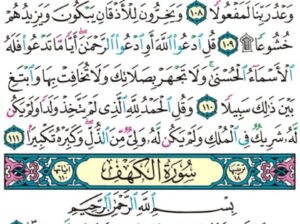 وَعْدُ رَبِّنَا لَمَفْعُولًا ١٠٨ وَيَخِرُّونَ لِلْأَذْقَانِ يَبْكُونَ وَيَزِيدُهُمْ
خُشُوعًا ۩ ١٠٩ قُلِ ادْعُوا اللَّهَ أَوِ ادْعُوا الرَّحْمَٰنَ أَيًّا مَّا تَدْعُوا فَلَهُ
الْأَسْمَاءُ الْحُسْنَىٰ وَلَا تَجْهَرْ بِصَلَاتِكَ وَلَا تُخَافِتْ بِهَا وَابْتَغِ
بَيْنَ ذَٰلِكَ سَبِيلًا ١١٠ وَقُلِ الْحَمْدُ لِلَّهِ الَّذِي لَمْ يَتَّخِذْ وَلَدًا وَلَمْ يَكُن
لَّهُ شَرِيكٌ فِي الْمُلْكِ وَلَمْ يَكُن لَّهُ وَلِيٌّ مِّنَ الذُّلِّ وَكَبِّرْهُ تَكْبِيرًا ١١١
سُورَةُ الْكَهْفِ
بِسْمِ اللَّهِ الرَّحْمَٰنِ الرَّحِيمِ